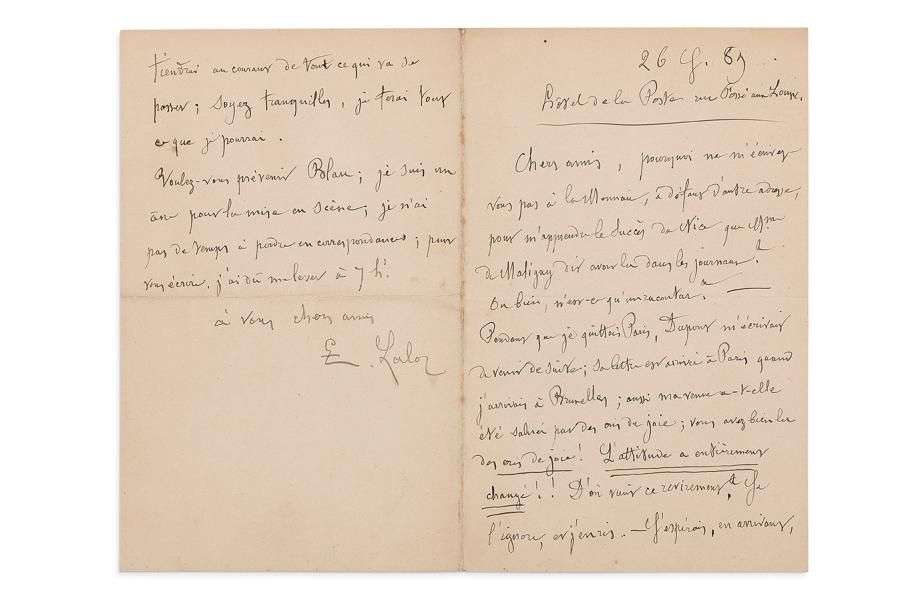 26 9. 89
Hôtel de la Poste rue Fossé aux Loups.
Chers amis, pourquoi ne m'écrivez
vous pas à la Monnaie, à défaut d'autre adresse,
pour m'apprendre le succès de Nice que Mme
de Maligny dit avoir lu dans les journaux ?
Ou bien, n'est-ce qu'un racontar ? —
Pendant que je quittais Paris, Dupont m'écrivait
de venir de suite; sa lettre est arrivée à Paris quand
j'arrivais à Bruxelles; aussi ma venue a-t-elle
été saluée par des cris de joie; vous avez bien lu
des cris de joie! L'attitude a entièrement
changé!! D'où vient ce revirement ? Je
l'ignore, et j'en ris. — J'espérais, en arrivant,
tiendrai au courant de tout ce qui va se
passer; soyez tranquilles, je ferai tout
ce que je pourrai.
Voulez-vous prévenir Blau; je suis un
âne pour la mise en scène; je n'ai
pas de temps à perdre en correspondances; pour
vous écrire, j'ai dû me lever à 7 h!
à vous chers amis
E. Lalo